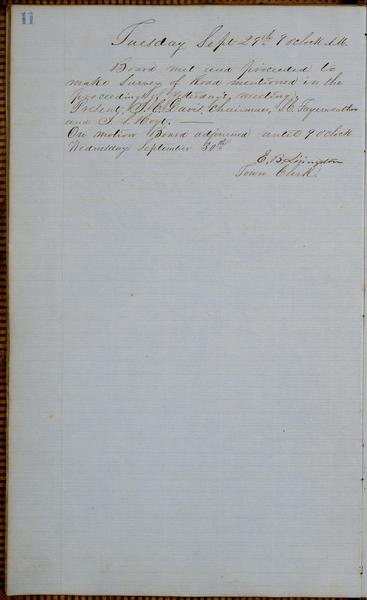 11
Tuesday Sept 29th 9 oclock A.M.
Board met and proceeded to
make survey of Road mentioned in the
proceedings of yesterday's meeting
Present, Davis, Chairman, Fayerweather
and Hoyt.
On motion Board adjourned until 9 oclock
Wednesday September 30th
E. B. Livingston
Town Clerk.